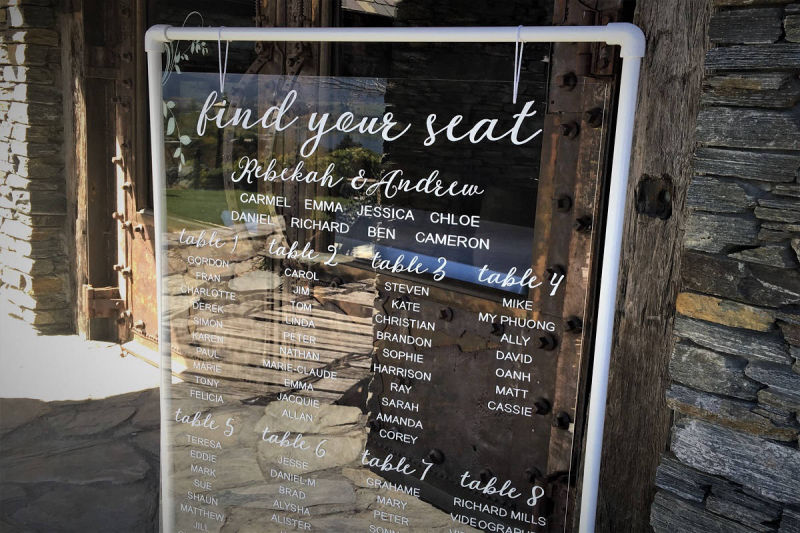 find your seat
Rebekah & Andrew
CARMEL EMMA JESSICA CHLOE
DANIEL RICHARD BEN CAMERON
table 1
GORDON
FRAN
CHARLOTTE
DEREK
SIMON
KAREN
PAUL
MARIE
TONY
FELICIA
table 2
CAROL
JIM
TOM
LINDA
PETER
NATHAN
MARIE-CLAUDE
EMMA
JACQUIE
ALLAN
table 3
STEVEN
KATE
CHRISTIAN
BRANDON
SOPHIE
HARRISON
RAY
SARAH
AMANDA
COREY
table 4
MIKE
MY PHUONG
ALLY
DAVID
OANH
MATT
CASSIE
table 5
TERESA
EDDIE
MARK
SUE
SHAUN
MATTHEW
JILL
table 6
JESSE
DANIEL M
BRAD
ALYSHA
ALISTER
table 7
GRAHAME
MARY
PETER
table 8
RICHARD MILLS